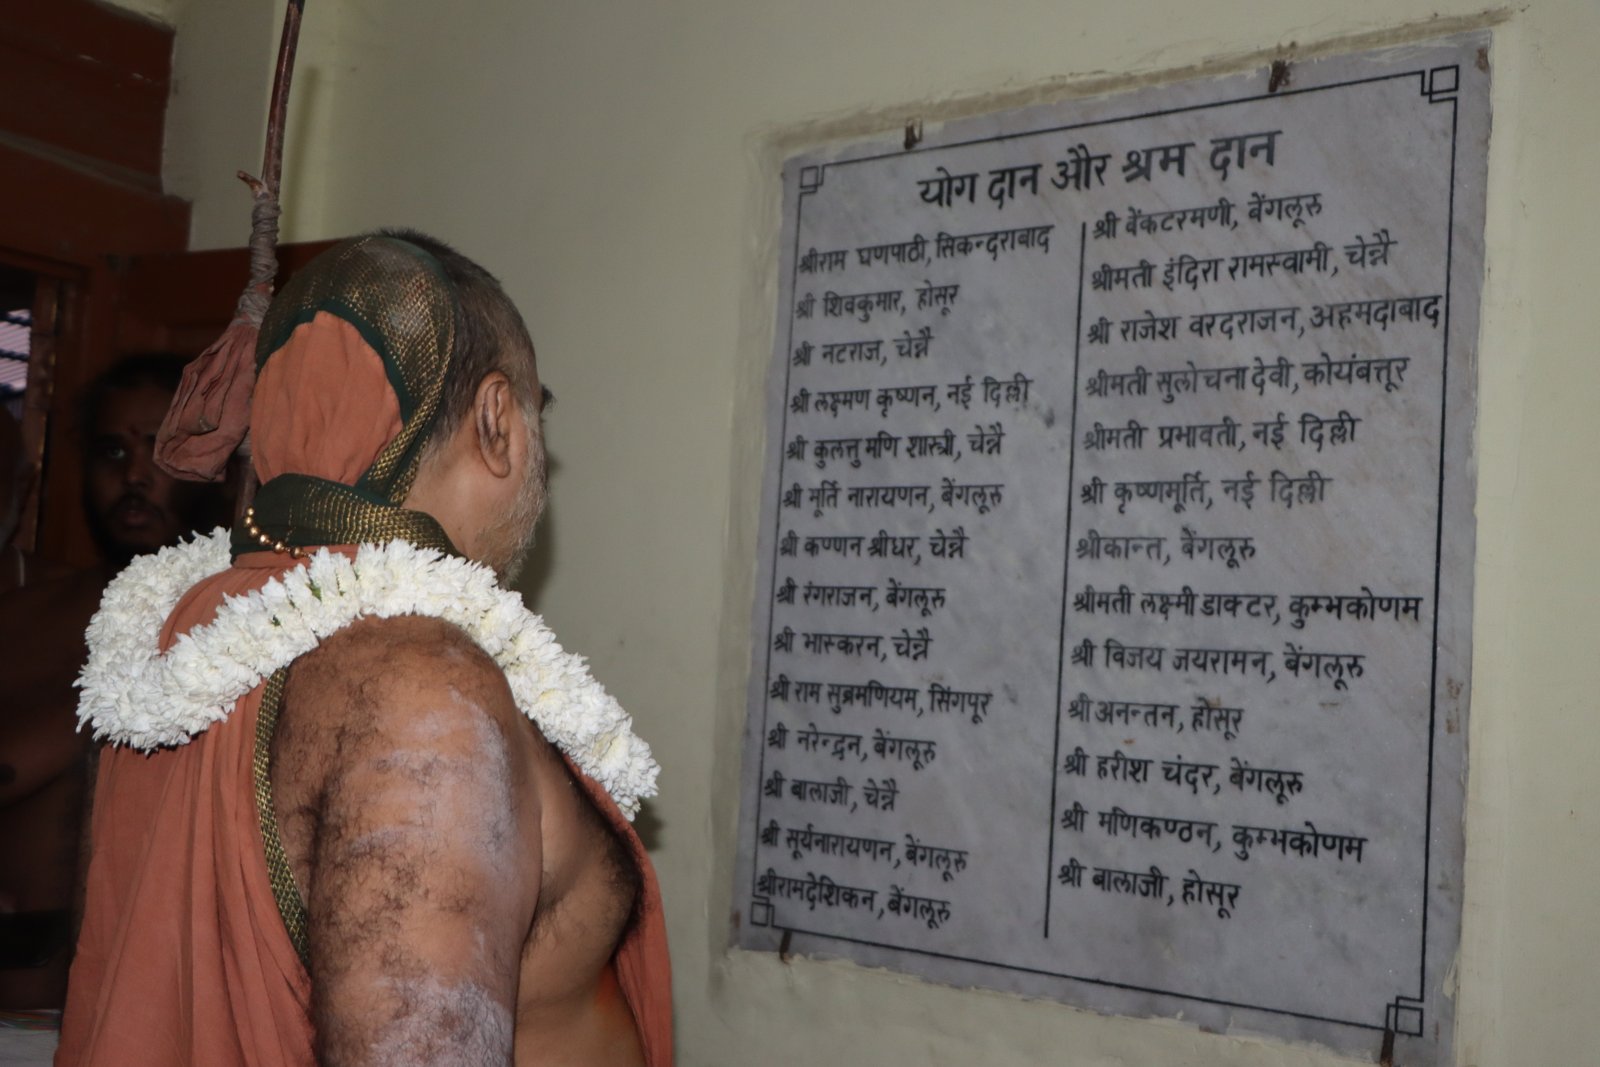 योग दान और श्रम दान
श्रीराम घणपाठी, सिकन्दराबाद
श्री शिवकुमार, होसूर
श्री नटराज, चेन्नै
श्री लक्ष्मण कृष्णन, नई दिल्ली
श्री कुलत्तु मणि शास्त्री, चेन्नै
श्री मूर्ति नारायणन, बेंगलूरु
श्री कण्णन श्रीधर, चेन्नै
श्री रंगराजन, बेंगलूरु
श्री भास्करन, चेन्नै
श्री राम सुब्रमणियम, सिंगपूर
श्री नरेन्द्रन, बेंगलूरु
श्री बालाजी, चेन्नै
श्री सूर्यनारायणन, बेंगलूरु
श्रीरामदेशिकन, बेंगलूरु
श्री वेंकटरमणी, बेंगलूरु
श्रीमती इंदिरा रामस्वामी, चेन्नै
श्री राजेश वरदराजन, अहमदाबाद
श्रीमती सुलोचना देवी, कोयंबत्तूर
श्रीमती प्रभावती, नई दिल्ली
श्री कृष्णमूर्ति, नई दिल्ली
श्रीकान्त, बेंगलूरु
श्रीमती लक्ष्मी डाक्टर, कुम्भकोणम
श्री विजय जयरामन, बेंगलूरु
श्री अनन्तन, होसूर
श्री हरीश चंदर, बेंगलूरु
श्री मणिकण्ठन, कुम्भकोणम
श्री बालाजी, होसूर